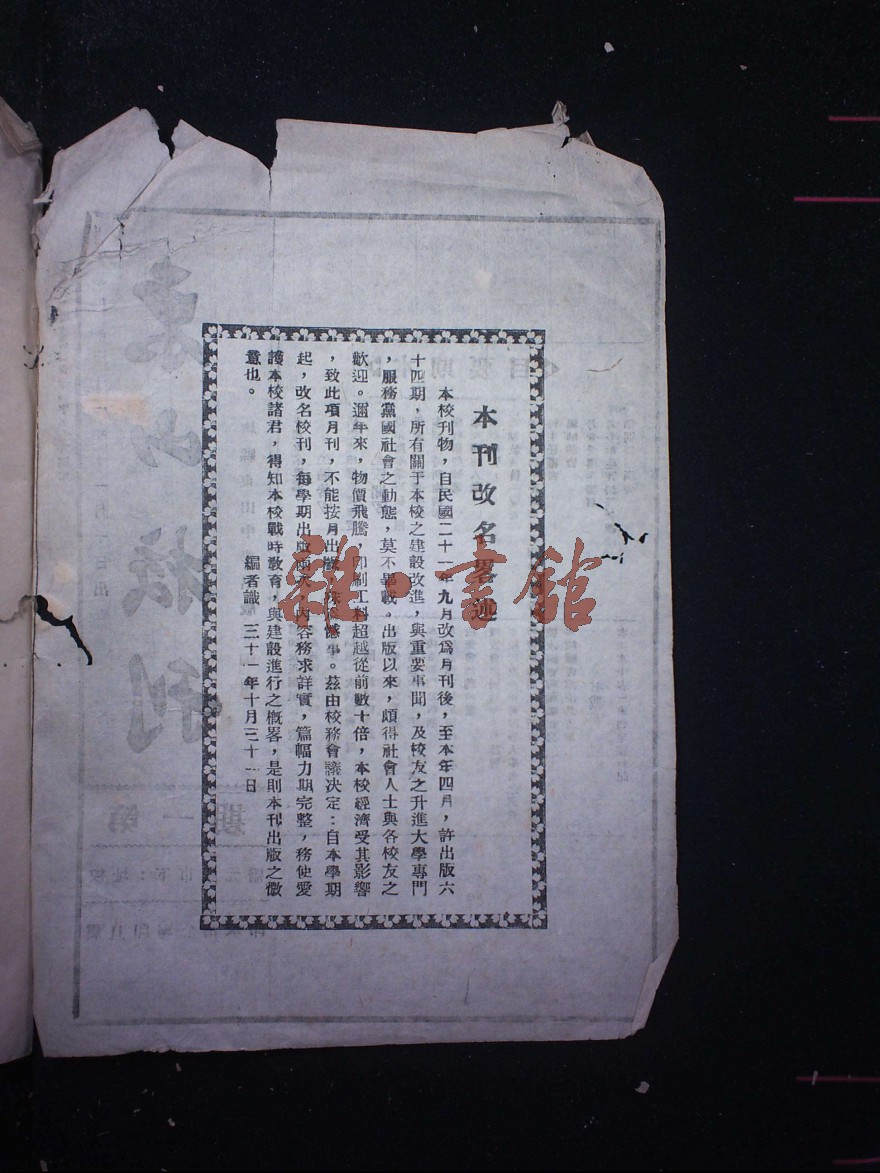 本刊改名畧述
本校刊物，自民國二十一年九月改爲月刊後，至本年四月，許出版六
十四期，所有關于本校之建設改進，與重要事聞，及校友之升進大學專門
，服務黨國社會之動態，莫不畢載。出版以來，頗得社會人士與各校友之
歡迎。邇年來，物價飛騰，印刷工料超越從前數十倍，本校經濟受其影響
，致此項月刊，不能按月出版，憾事。茲由校務會議決定：自本學期
起，改名校刊，每學期出版兩次，內容務求詳實，篇幅力期完整，務使愛
護本校諸君，得知本校戰時教育，與建設進行之概畧，是則本刊出版之微
意也。 編者識 三十一年十月三十一日
雜·書館
東山校刊
第一期